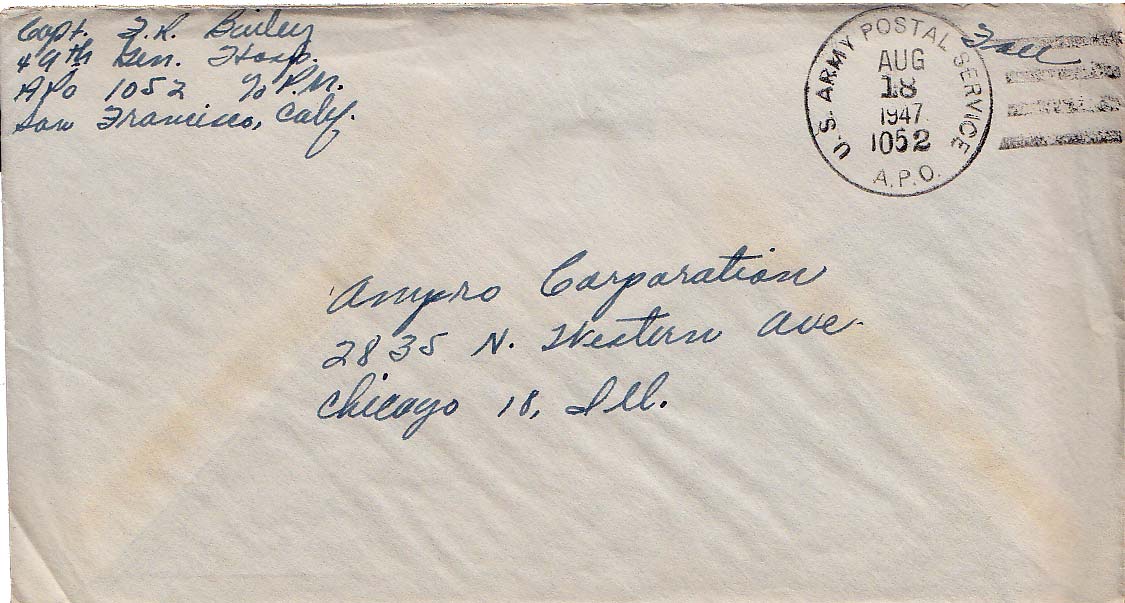 Capt. F. R. Bailey
49th Gen. Hosp.
APO 1052 c/o P.M.
San Francisco, Calif.
U.S. ARMY POSTAL SERVICE
AUG
18
1947
1052
A.P.O.
Free
Ampro Corporation
2835 N. Western Ave.
Chicago 18, Ill.